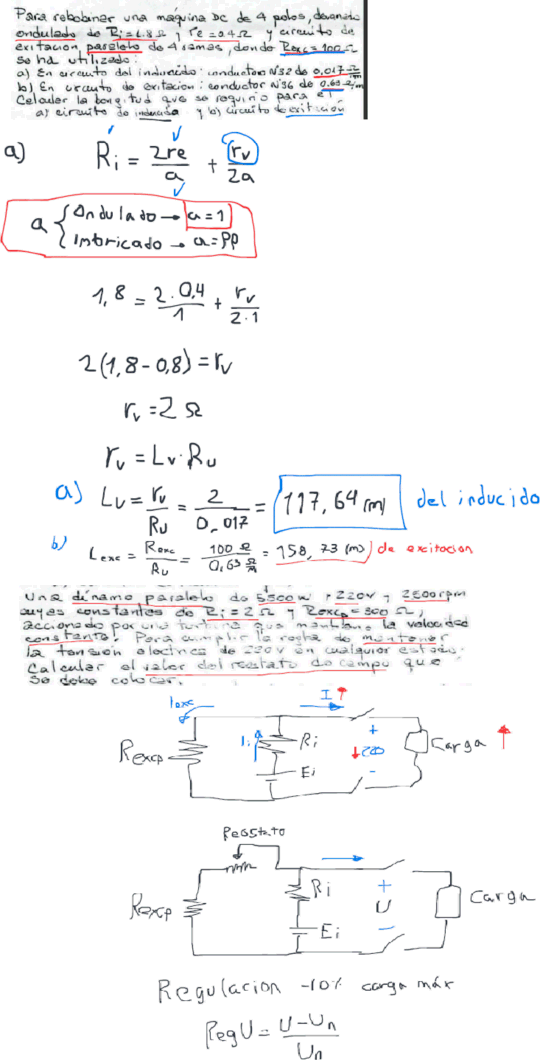 Para rebobinar una maquina DC de 4 polos, devanado
ondulado de Ri=1.8Ω, re=0.4Ω y circuito de
exitacion paralelo de 4 ramas, donde Rexc=100Ω
se ha utilizado:
a) En circuito del inducido: conductor Nº32 de 0,017 Ω/m
b) En circuito de exitacion: conductor Nº36 de 0.63 Ω/m
Calcular la longitud que se requirio para el
a) circuito de inducido y b) circuito de exitación
a) Ri = 2re/a + rv/2a
a { Ondulado → a=1
Imbricado → a=PP
1,8 = 2.0,4/1 + rv/2.1
2(1,8-0,8)=rv
rv=2Ω
rv=Lv.Ru
a) Lv=rv/Ru=2/0,017=117,64(m) del inducido
b) Lexc=Rexc/Ru=100Ω/0,63Ω/m=158,73(m) de excitacion
Una dinamo paralelo de 5500w, 220v y 2500rpm
cuyas constantes de Ri=2Ω y Rexcp=300Ω,
accionado por una turbina que mantiene la velocidad
constante. Para cumplir la regla de mantener
la tension electrica de 220V en cualquier estado.
Calcular el valor del reostato de campo que
se debe colocar.
Iexc I ↑
Rexcp Ii Ri + ↓220 - Carga ↑
Ei
Reostato
Rexcp Ri + U - Carga
Ei
Regulacion -10% carga máx
RegU=U-Un/Un